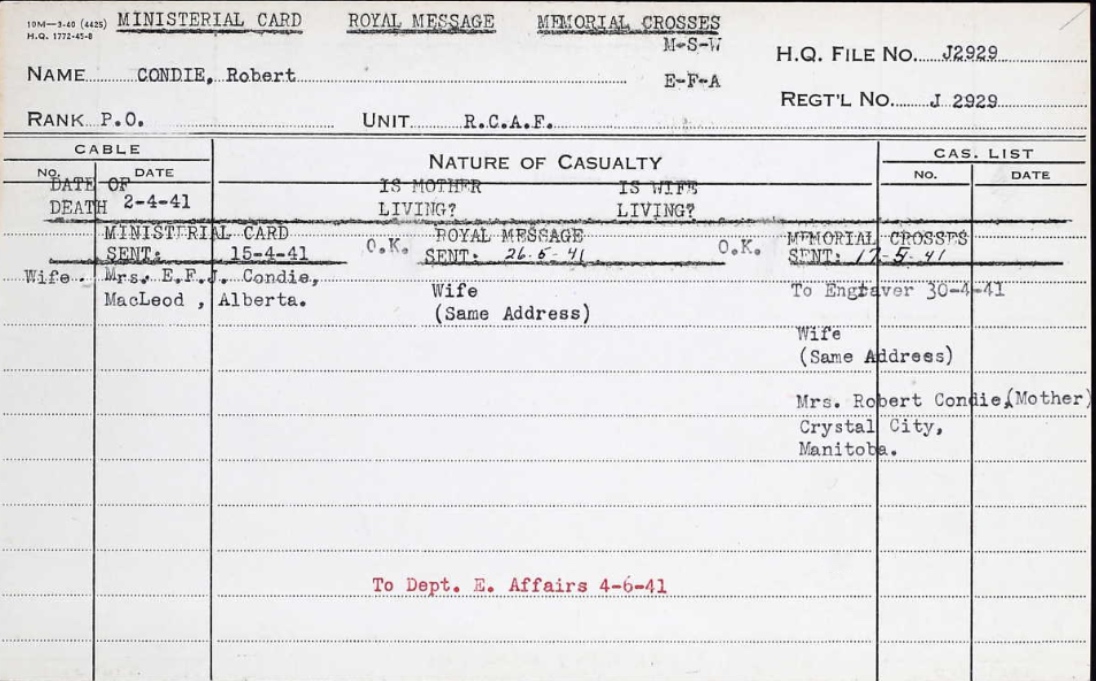 10M—3-40 (4425) MINISTERIAL CARD ROYAL MESSAGE MEMORIAL CROSSES
H.Q. 1772-45-8
M-S-W
H.Q. FILE NO. J2929
NAME CONDIE, Robert E-F-A
REGT'L NO. J 2929
RANK P.O. UNIT R.C.A.F.
CABLE NATURE OF CASUALTY CAS. LIST
NO. DATE NO. DATE
DATE OF DEATH 2-4-41
IS MOTHER LIVING? IS WIFE LIVING?
MINISTERIAL CARD
SENT: 15-4-41
O.K. ROYAL MESSAGE
SENT: 26-5-41
O.K. MEMORIAL CROSSES
SENT: 17-5-41
Wife. Mrs. E.F.J. Condie,
MacLeod , Alberta.
Wife
(Same Address)
To Engraver 30-4-41
Wife
(Same Address)
Mrs. Robert Condie,(Mother)
Crystal City,
Manitoba.
To Dept. E. Affairs 4-6-41